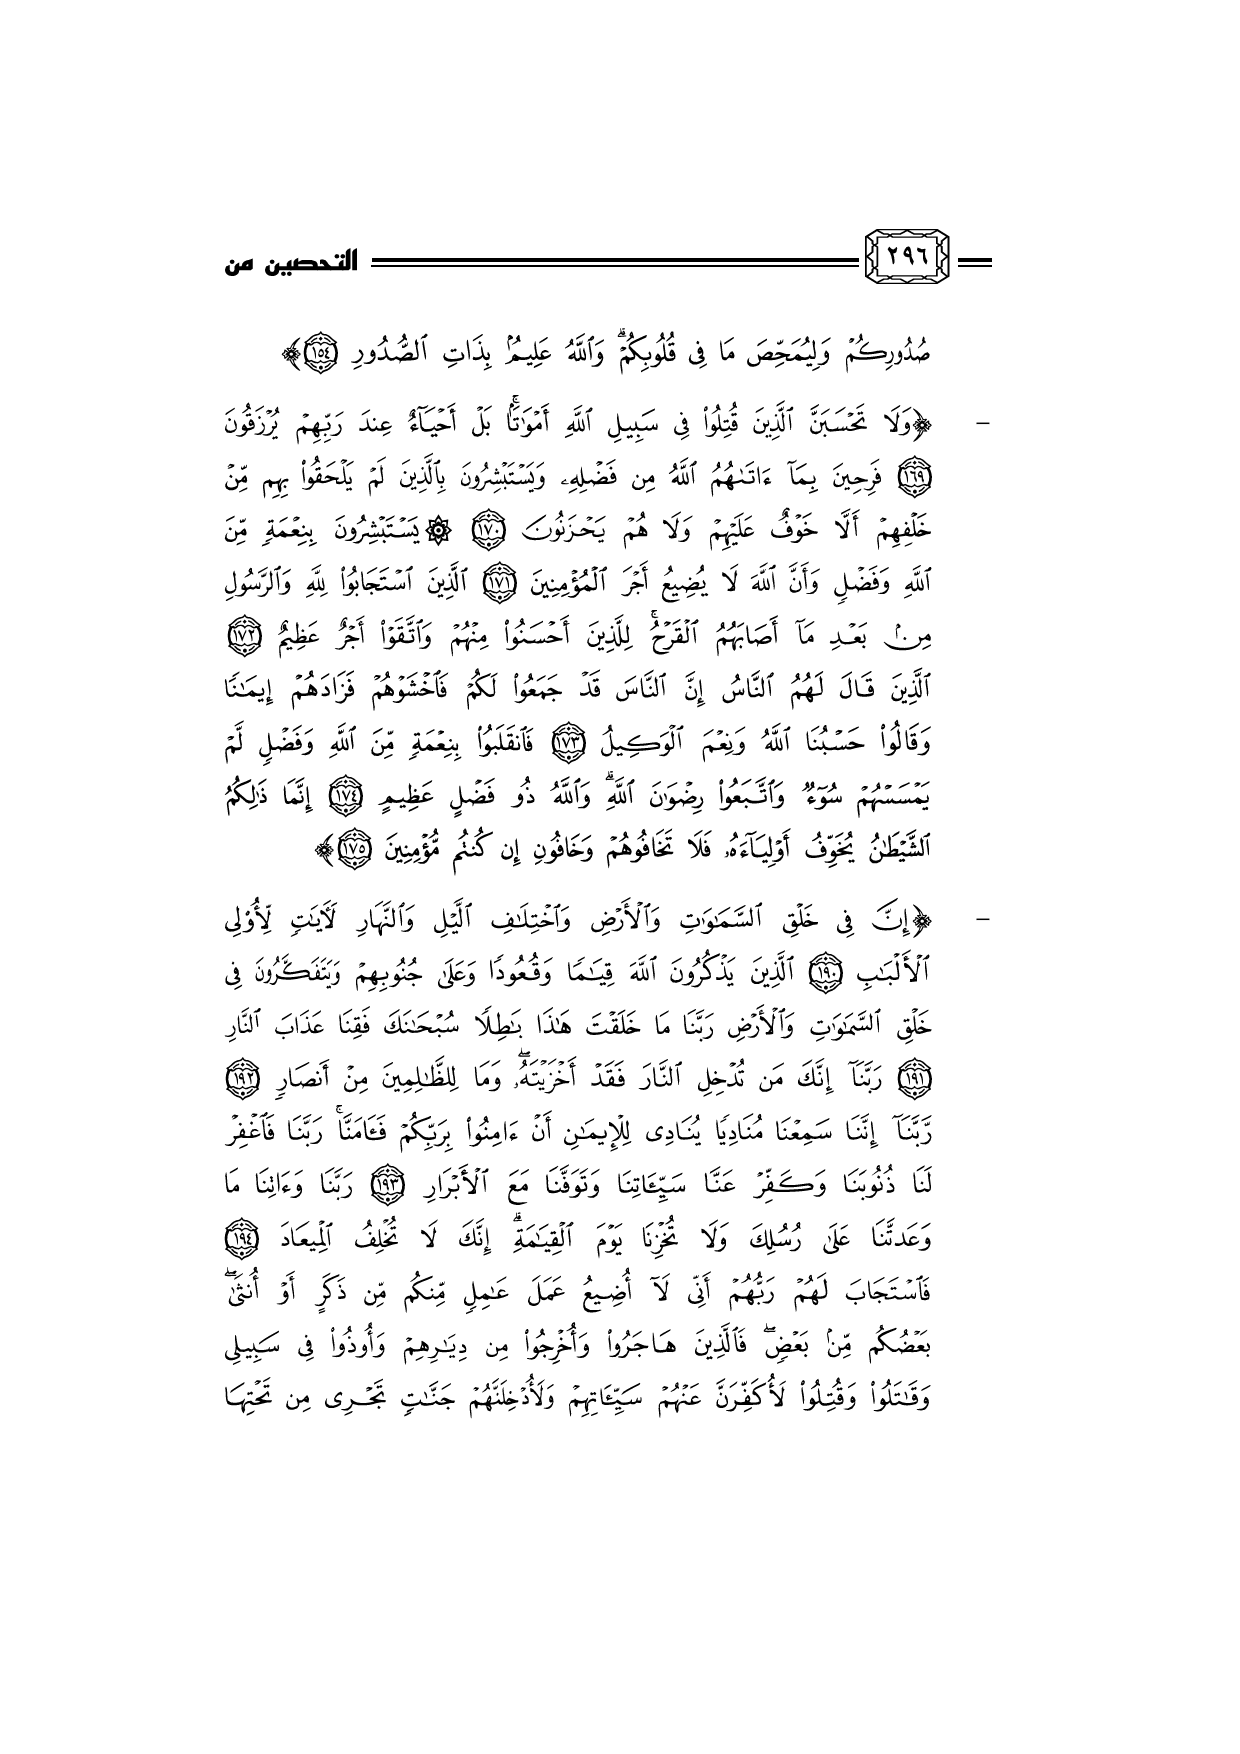 ٢٩٦ التحصين من
صُدُورِكُمْ وَلِيُمَحِّصَ مَا فِى قُلُوبِكُمْ ۗ وَٱللَّهُ عَلِيمٌۢ بِذَاتِ ٱلصُّدُورِ ١٥٤﴾
- ﴿وَلَا تَحْسَبَنَّ ٱلَّذِينَ قُتِلُوا۟ فِى سَبِيلِ ٱللَّهِ أَمْوَٰتًۢا ۚ بَلْ أَحْيَآءٌ عِندَ رَبِّهِمْ يُرْزَقُونَ
١٦٩ فَرِحِينَ بِمَآ ءَاتَىٰهُمُ ٱللَّهُ مِن فَضْلِهِۦ وَيَسْتَبْشِرُونَ بِٱلَّذِينَ لَمْ يَلْحَقُوا۟ بِهِم مِّنْ
خَلْفِهِمْ أَلَّا خَوْفٌ عَلَيْهِمْ وَلَا هُمْ يَحْزَنُونَ ١٧٠ ۞ يَسْتَبْشِرُونَ بِنِعْمَةٍ مِّنَ
ٱللَّهِ وَفَضْلٍ وَأَنَّ ٱللَّهَ لَا يُضِيعُ أَجْرَ ٱلْمُؤْمِنِينَ ١٧١ ٱلَّذِينَ ٱسْتَجَابُوا۟ لِلَّهِ وَٱلرَّسُولِ
مِنۢ بَعْدِ مَآ أَصَابَهُمُ ٱلْقَرْحُ ۚ لِلَّذِينَ أَحْسَنُوا۟ مِنْهُمْ وَٱتَّقَوْا۟ أَجْرٌ عَظِيمٌ ١٧٢
ٱلَّذِينَ قَالَ لَهُمُ ٱلنَّاسُ إِنَّ ٱلنَّاسَ قَدْ جَمَعُوا۟ لَكُمْ فَٱخْشَوْهُمْ فَزَادَهُمْ إِيمَٰنًا
وَقَالُوا۟ حَسْبُنَا ٱللَّهُ وَنِعْمَ ٱلْوَكِيلُ ١٧٣ فَٱنقَلَبُوا۟ بِنِعْمَةٍ مِّنَ ٱللَّهِ وَفَضْلٍ لَّمْ
يَمْسَسْهُمْ سُوٓءٌ وَٱتَّبَعُوا۟ رِضْوَٰنَ ٱللَّهِ ۗ وَٱللَّهُ ذُو فَضْلٍ عَظِيمٍ ١٧٤ إِنَّمَا ذَٰلِكُمُ
ٱلشَّيْطَٰنُ يُخَوِّفُ أَوْلِيَآءَهُۥ فَلَا تَخَافُوهُمْ وَخَافُونِ إِن كُنتُم مُّؤْمِنِينَ ١٧٥﴾
- ﴿إِنَّ فِى خَلْقِ ٱلسَّمَٰوَٰتِ وَٱلْأَرْضِ وَٱخْتِلَٰفِ ٱلَّيْلِ وَٱلنَّهَارِ لَءَايَٰتٍ لِّأُو۟لِى
ٱلْأَلْبَٰبِ ١٩٠ ٱلَّذِينَ يَذْكُرُونَ ٱللَّهَ قِيَٰمًا وَقُعُودًا وَعَلَىٰ جُنُوبِهِمْ وَيَتَفَكَّرُونَ فِى
خَلْقِ ٱلسَّمَٰوَٰتِ وَٱلْأَرْضِ رَبَّنَا مَا خَلَقْتَ هَٰذَا بَٰطِلًا سُبْحَٰنَكَ فَقِنَا عَذَابَ ٱلنَّارِ
١٩١ رَبَّنَآ إِنَّكَ مَن تُدْخِلِ ٱلنَّارَ فَقَدْ أَخْزَيْتَهُۥ ۖ وَمَا لِلظَّٰلِمِينَ مِنْ أَنصَارٍ ١٩٢
رَّبَّنَآ إِنَّنَا سَمِعْنَا مُنَادِيًا يُنَادِى لِلْإِيمَٰنِ أَنْ ءَامِنُوا۟ بِرَبِّكُمْ فَـَٔامَنَّا ۚ رَبَّنَا فَٱغْفِرْ
لَنَا ذُنُوبَنَا وَكَفِّرْ عَنَّا سَيِّـَٔاتِنَا وَتَوَفَّنَا مَعَ ٱلْأَبْرَارِ ١٩٣ رَبَّنَا وَءَاتِنَا مَا
وَعَدتَّنَا عَلَىٰ رُسُلِكَ وَلَا تُخْزِنَا يَوْمَ ٱلْقِيَٰمَةِ ۗ إِنَّكَ لَا تُخْلِفُ ٱلْمِيعَادَ ١٩٤
فَٱسْتَجَابَ لَهُمْ رَبُّهُمْ أَنِّى لَآ أُضِيعُ عَمَلَ عَٰمِلٍ مِّنكُم مِّن ذَكَرٍ أَوْ أُنثَىٰ ۖ
بَعْضُكُم مِّنۢ بَعْضٍ ۖ فَٱلَّذِينَ هَاجَرُوا۟ وَأُخْرِجُوا۟ مِن دِيَٰرِهِمْ وَأُوذُوا۟ فِى سَبِيلِى
وَقَٰتَلُوا۟ وَقُتِلُوا۟ لَأُكَفِّرَنَّ عَنْهُمْ سَيِّـَٔاتِهِمْ وَلَأُدْخِلَنَّهُمْ جَنَّٰتٍ تَجْرِى مِن تَحْتِهَا